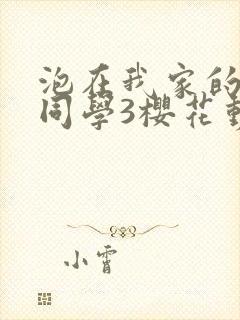 泡在我家的
同學3櫻花動
小霄